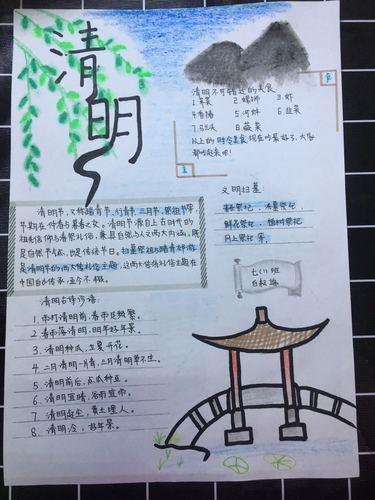 清明
食
清明不可错过的美食
1.苹菜 2.螺狮 3.虾
4.香椿 5.河蚌 6.韭菜
7.马兰头 8.蕨菜
以上的时令美食现在吃最好了,大家
都吃起来吧!
文明扫墓
书长祭祀,水墨祭祀
鲜花祭祀,植树祭祀
网上祭祀等。
清明节,又称踏青节、行清节、三月节、祭祖节等,
节期在仲春与暮春之交。清明节源自上古时代的
祖先信仰与春祭礼俗,兼具自然与人文两大内涵,既
是自然节气,也是传统节日。扫墓祭祖与踏青郊游
是清明节的两大礼俗主题,这两大传统礼俗主题在
中国自古传承,至今不辍。
七(1)班
清明古诗谚语:
1.雨打清明前,春雨定频繁。
2.春雨落清明,明年好年景。
3.清明种瓜,立夏开花。
4.二月清明一片青,三月清明草不生。
5.清明前后,点瓜种豆。
6.清明宜晴,谷雨宜雨。
7.清明起尘,黄土埋人。
8.清明冷,好年景。